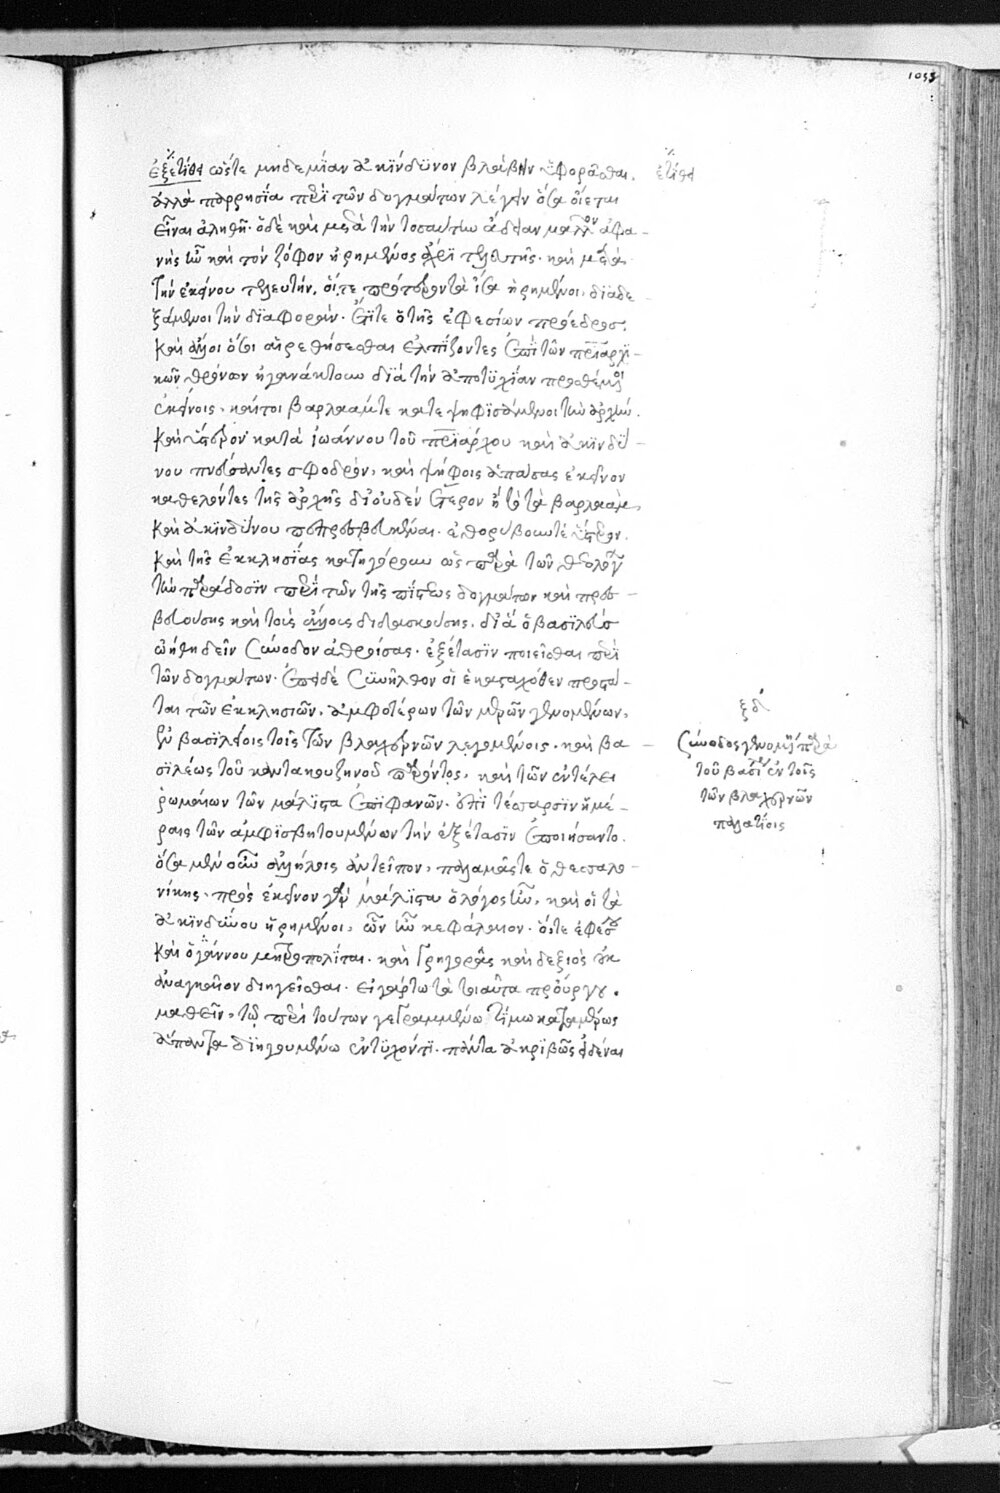 1053
ἐξετίθει ὥστε μηδεμίαν Ἀκίνδυνον βλάβην ὑφορᾶσθαι, ἐτίθει
ἀλλὰ παρρησία περὶ τῶν δογμάτων λέγειν ὅσα οἴεται
εἶναι ἀληθῆ. ὁ δὲ καὶ μετὰ τὴν τοσαύτην ἄδειαν μᾶλλον ἀφα-
νὴς ἦν καὶ τὸν ζόφον ᾑρημένος ἄχρι τελευτῆς. καὶ μετὰ
τὴν ἐκείνου τελευτήν, οἵ τε πρότερον τὰ ἴσα ᾑρημένοι, διαδε
ξάμενοι τὴν διαφοράν. εἴτε ὁ τῆς ἐφεσίων πρόεδρος,
καὶ ἄλλοι ὅσοι αἱρεθήσεσθαι ἐλπίζοντες ἐπὶ τῶν πριαρχι-
κῶν θρόνων ἠγανάκτουν διὰ τὴν ἀποτυχίαν προσθέμενοι
ἐκείνοις, καίτοι βαρλαάμ τε καταψηφισάμενοι τὴν ἀρχὴν.
καὶ ὕστερον κατὰ ἰωάννου τοῦ πριάρχου καὶ ἀκινδύ-
νου πνεύσαντες σφοδρόν, καὶ ψήφοις ἁπάσαις ἐκεῖνον
καθελόντες τῆς ἀρχῆς δι' οὐδὲν ἕτερον ἢ τὸ τὰ βαρλαὰμ
καὶ ἀκινδύνου προσβεύειν. ἐθορύβουν τε ὕστερον,
καὶ τῆς ἐκκλησίας κατηγόρουν ὡς παρὰ τῶν θεολόγων
τὴν παράδοσιν περὶ τῶν τῆς πίστεως δογμάτων καὶ πρεσ-
βευούσης καὶ τοὺς ἄλλους διδασκούσης, διὰ ὁ βασιλεὺς
ᾠήθη δεῖν σύνοδον ἀθροίσας. ἐξέτασιν ποιεῖσθαι περὶ
τῶν δογμάτων. ἐπεὶ δὲ συνῆλθον οἱ ἑκασταχόθεν προστά-
ται τῶν ἐκκλησιῶν, ἀμφοτέρων τῶν μερῶν γενομένων,
ἐν βασιλείοις τοῖς τῶν βλαχερνῶν λεγομένοις. καὶ βα-
σιλέως τοῦ καντακουζηνοῦ παρόντος, καὶ τῶν ἐν τέλει
ῥωμαίων τῶν μάλιστα ἐπιφανῶν. ἐπὶ τέσσαρσιν ἡμέ-
ραις τῶν ἀμφισβητουμένων τὴν ἐξέτασιν ἐποιήσαντο.
ὅσα μὲν οὖν ἀλλήλοις ἀντεῖπον, παλαμᾶς τε ὁ θεσσαλο-
νίκης. πρὸς ἐκεῖνον γὰρ μάλιστα ὁ λόγος ἦν, καὶ οἱ τὰ
ἀκινδύνου ᾑρημένοι, ὧν ἦν κεφάλαιον. ὅ, τε ἐφέσου
καὶ ὁ γάννου μητροπολῖται. καὶ γρηγορᾶς καὶ δεξιὸς οὐκ
ἀναγκαῖον διηγεῖσθαι. εἰ γάρ τω τὰ τοιαῦτα προὔργου.
μαθεῖν, τῷ περὶ τούτων γεγραμμένω τόμω καταμέρως
ἅπαντα διηγουμένω ἐντυχόντι. πάντα ἀκριβῶς εἰδέναι
ξδ
Σύνοδος γενομένη παρὰ
τοῦ βασιλέως ἐν τοῖς
τῶν βλαχερνῶν
παλατίοις